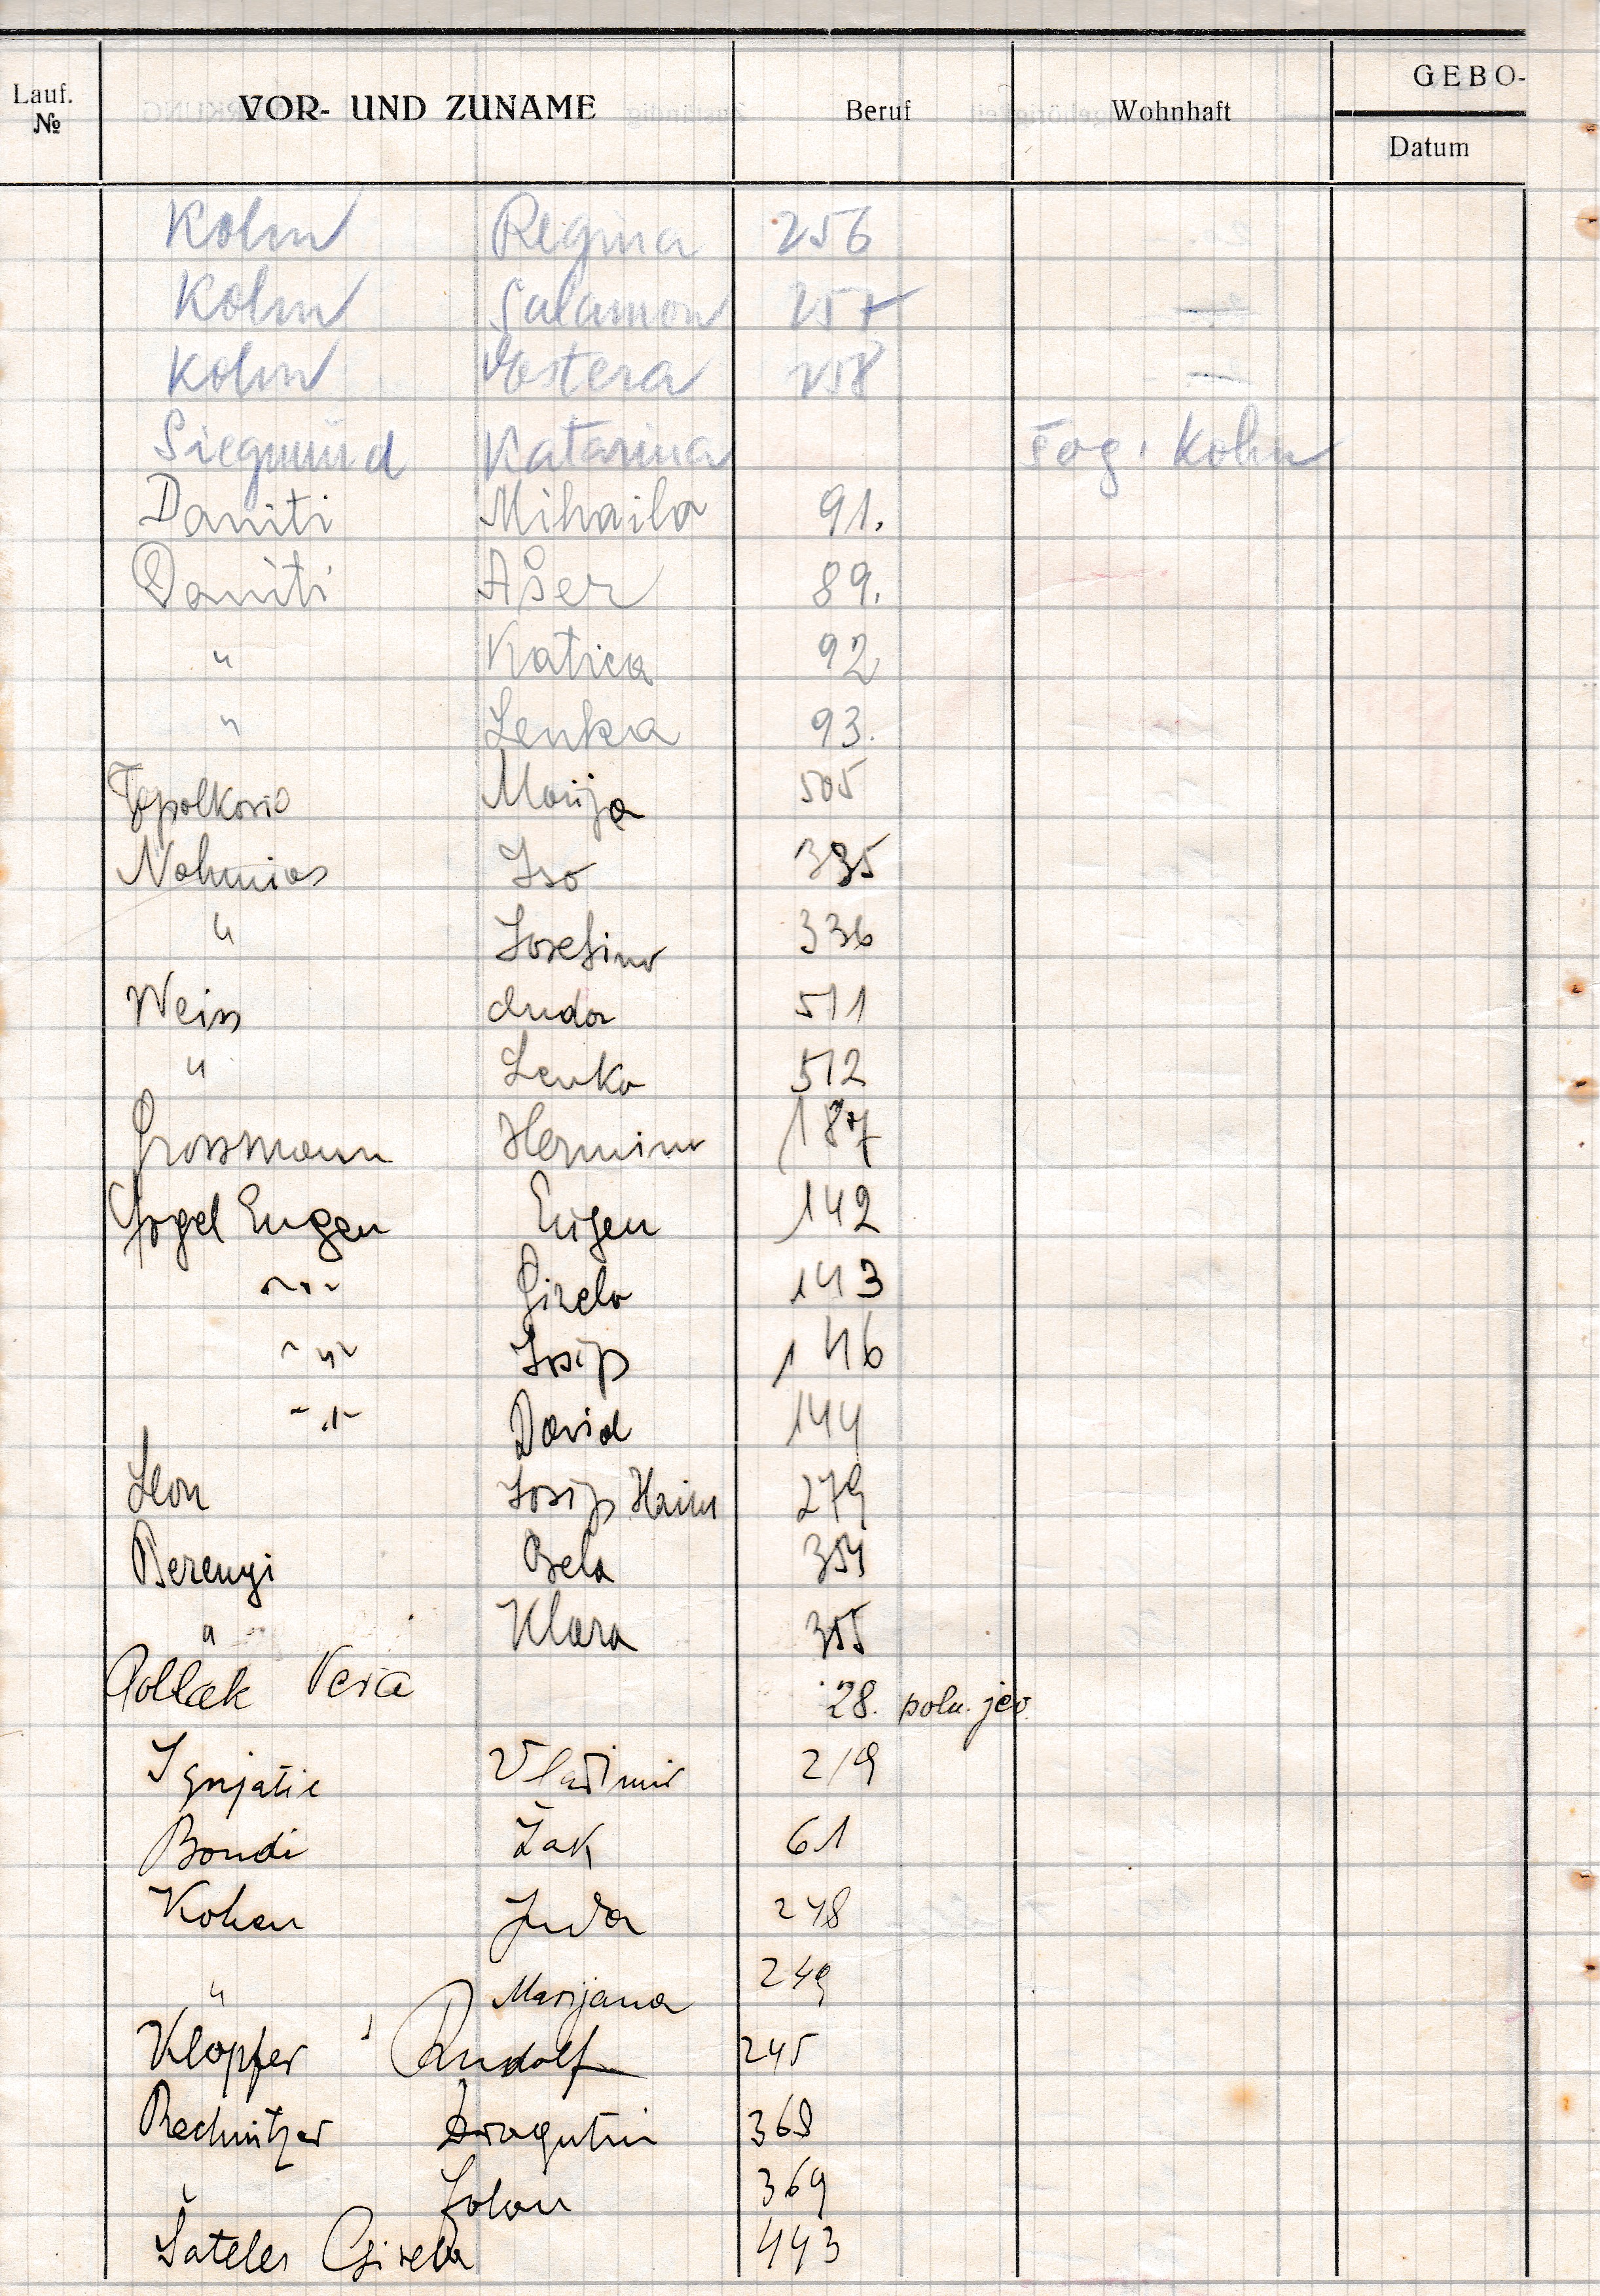 GEBO-
Lauf. № VOR- UND ZUNAME Beruf Wohnhaft Datum
Kohn Regina 256
Kohn Salamon 257
Kohn Estera 258 —
Siegmund Katarina Kohn
Daniti Mihaila 91.
Daniti Ašer 89.
" Katica 92
" Lenka 93.
Marija 505
Nahmias Iso 335
" Josefina 336
Weiss 511
" Lenka 512
Grossmann Hermina 187
Fogel Eugen Eugen 142
" Gizela 143
" Josip 146
" David 144
Leon Josip Haim 279
Berenyi Bela 354
" Klara 355
Pollak Vera 28. polu. jev.
Ignjatić Vladimir 219
Bondi Žak 61
Kohen Juda 248
" Marijana 249
Klopfer Rudolf 245
Rechnitzer Dragutin 368
" Jolan 369
Šateles Gisela 443